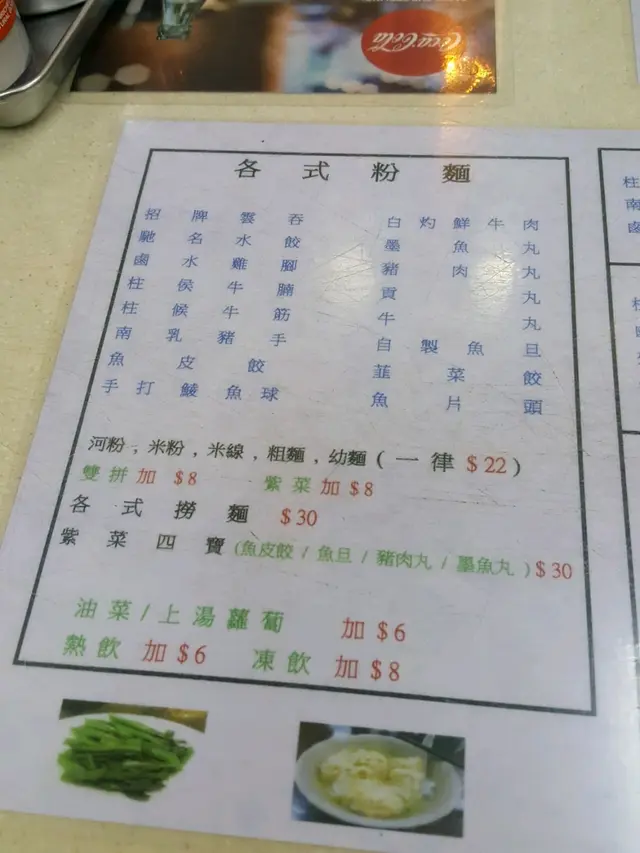 Coca-Cola
各式粉麵
招牌雲吞 白灼鮮牛肉
馳名水餃 墨魚丸
鹵水雞腳 豬肉丸
柱侯牛腩 貢丸
柱候牛筋 牛丸
南乳豬手 自製魚旦
魚皮餃 韮菜餃
手打鯪魚球 魚片頭
河粉,米粉,米線,粗麵,幼麵(一律$22)
雙拼加$8 紫菜加$8
各式撈麵 $30
紫菜四寶(魚皮餃/魚旦/豬肉丸/墨魚丸)$30
油菜/上湯蘿蔔 加$6
熱飲 加$6 凍飲 加$8
柱
南
鹵